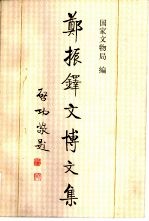 国家文物局 编
鄭振鐸文博文集
启功敬题